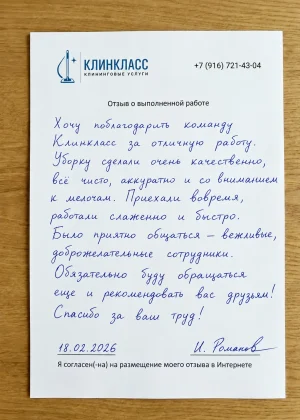 КЛИНКЛАСС
КЛИНИНГОВЫЕ УСЛУГИ
+7 (916) 721-43-04
Отзыв о выполненной работе
Хочу поблагодарить команду
Клинкласс за отличную работу.
Уборку сделали очень качественно,
всё чисто, аккуратно и со вниманием
к мелочам. Приехали вовремя,
работали слаженно и быстро.
Было приятно общаться – вежливые,
доброжелательные сотрудники.
Обязательно буду обращаться
еще и рекомендовать вас друзьям!
Спасибо за ваш труд!
18.02.2026 И. Романов
Я согласен(-на) на размещение моего отзыва в Интернете